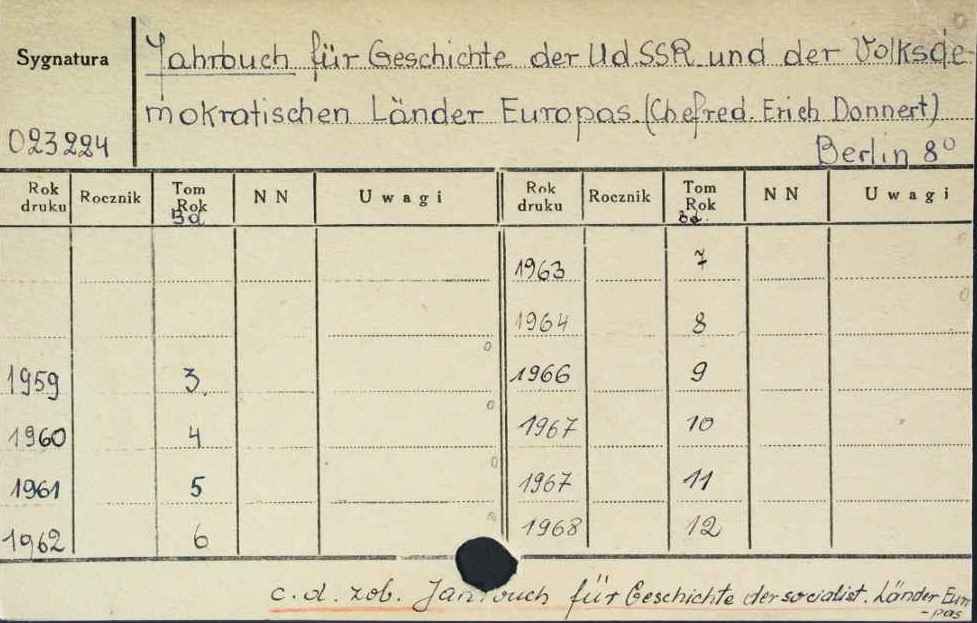 Sygnatura
023224
Jahrbuch für Geschichte der UdSSR und der Volksde-
mokratischen Länder Europas. (Chefred. Erich Donnert)
Berlin 8º
Rok druku Rocznik Tom Rok Bd NN Uwagi Rok druku Rocznik Tom Rok Bd. NN Uwagi
1963 7
1964 8
1959 3. 1966 9
1960 4 1967 10
1961 5 1967 11
1962 6 1968 12
c.d. zob. Jahrbuch für Geschichte der socialist. Länder Euro
-pas